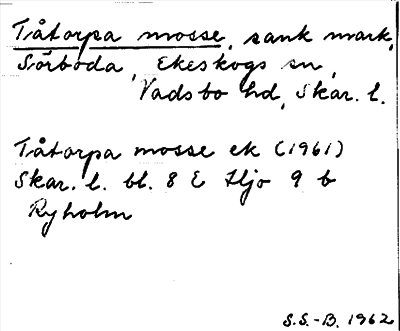 Tåtorpa mosse, sank mark,
Sörboda, Ekeskogs sn,
Vadsbo hd, Skar. l.
Tåtorpa mosse ek (1961)
Skar. l. bl. 8 E Hjo 9 b
Ryholm
S.S.-B. 1962